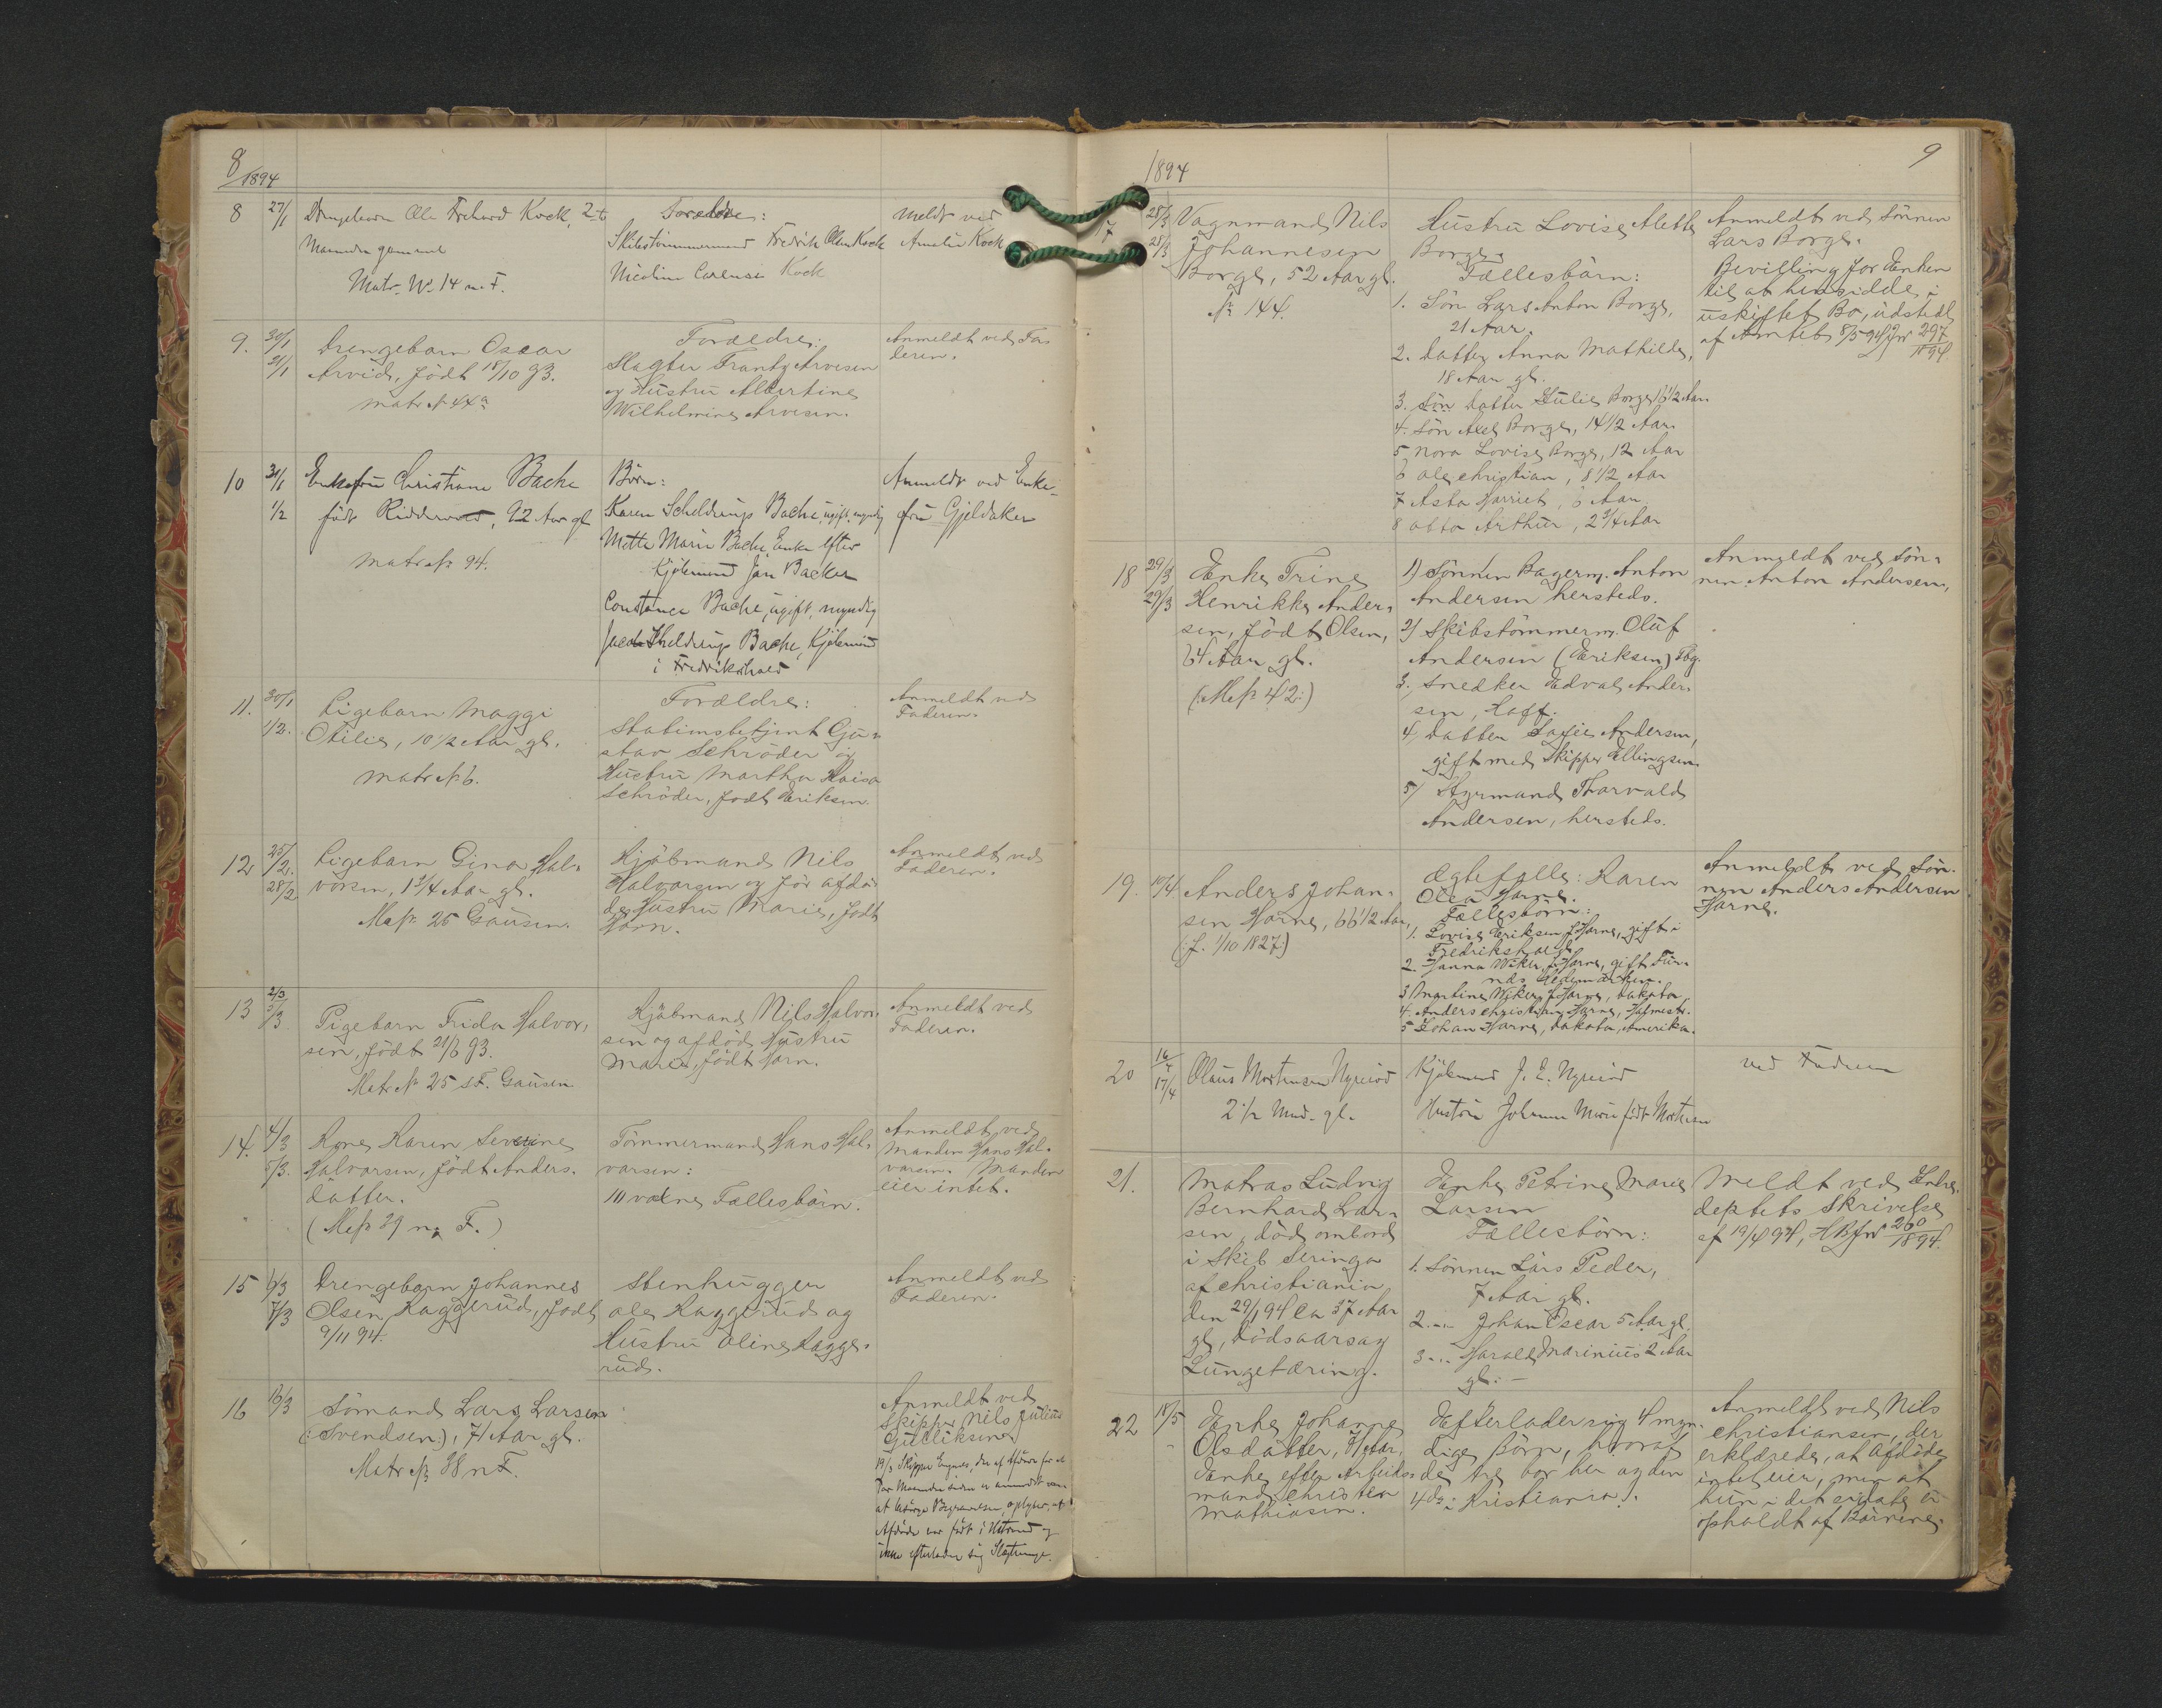 8
1894
8 27/1 Drengebarn Ole Kock, 2
Maaneder gammel
Matr. No 14 n. F.
Forældre:
Skibstømmermand Fredrik Olsen Kock
Nicoline Kock
Meldt ved
Amalie Kock
9. 30/1 31/1 Drengebarn Oscar
Arvid, født 18/10 93.
matr № 44a
Forældre:
Slagter Frantz Arvesen
og Hustru Albertine
Wilhelmine Arvesen.
Anmeldt ved Fa-
deren.
10 31/1 1/2 Enkefru Christiane Bache
født Riddervold, 92 Aar gl
matr № 94.
Børn:
Karen Scheldrup Bache, ugift, myndig
Mette Marie Bache, Enke efter
Kjøbmand Jan Backer
Constance Bache, ugift, myndig
Jacob Scheldrup Bache, Kjøbmand
i Fredrikshald
Anmeldt ved Enke-
fru Gjeldaker
11. 30/1 1/2. Pigebarn Maggi
Otilie, 10 1/2 Aar gl.
matr № 6.
Forældre:
Stationsbetjent Gu-
stav Schrøder og
Hustru Martha
Schrøder, født Eriksen.
Anmeldt ved
Faderen.
12 25/2. 28/2 Pigebarn Gina Hal-
vorsen, 1 3/4 Aar gl.
M№ 25 Gausen.
Kjøbmand Nils
Halvorsen og før afdø-
de Hustru Marie, født
Horn.
Anmeldt ved
Faderen.
13 2/3 5/3 Pigebarn Frida Halvor-
sen, født 21/6 93.
Matr № 25 s F. Gausen
Kjøbmand Nils Halvor-
sen og afdød Hustru
Marie, født Horn.
Anmeldt ved
Faderen.
14. 4/3 5/3. Kone Karen Severine
Halvorsen, født Anders-
datter.
(M№ 29 n. F.)
Tømmermand Hans Hal-
vorsen:
10 voxne Fællesbørn.
Anmeldt ved
Manden Hans Hal-
vorsen. Manden
eier intet.
15 6/3 7/3 Drengebarn Johannes
Olsen Raggerud, født
9/11 94.
Stenhugger
Ole Raggerud og
Hustru Oline Ragge-
rud.
Anmeldt ved
Faderen.
16 16/3 Sømand Lars Larsen
(:Svendsen:), 71 Aar gl.
Matr № 38 n F.
Anmeldt ved
Skipper Nils Julius
Gulliksen
19/3 Skipper Engenes, der af Afdøde for et
Par Maaneder siden er anmodet om
at besørge Begravelsen, oplyser, at
Afdøde var født i og
ikke efterlader sig Slægtninge.
1894
9
17 28/3 28/3 Vognmand Nils
Johannesen
Borge, 52 Aar gl.
№ 144.
Hustru Lovise Alette
Borge.
Fællesbørn:
1. Søn Lars Anton Borge,
21 Aar.
2. Datter Anna Mathilde,
18 Aar gl.
3. Søn Datter Julie Borge, 16 1/2 Aar.
4. Søn Axel Borge, 14 1/2 Aar.
5 Nora Lovise Borge, 12 Aar
6 Ole Christian, 8 1/2 Aar
7 Asta Harriet, 6 Aar.
8 Otto Arthur, 2 3/4 Aar
Anmeldt ved Sønnen
Lars Borge.
Bevilling for Enken
til at hensidde i
uskiftet Bo, udstedt
af Amtet 8/5 94 Jr № 297/1894
18 29/3 29/3 Enke Trine
Henrikke Ander-
sen, født Olsen,
64 Aar gl.
(:M№ 42:)
1) Sønnen Bagerm. Anton
Andersen hersteds.
2) Skibstømmerm. Oluf
Andersen (Eriksen) Tbg.
3. Snedker Edvald Ander-
sen,
4, Datter Andersen,
gift med Skipper Ellingsen.
5) Styrmand Thorvald
Andersen, hersteds.
Anmeldt ved Søn-
nen Anton Andersen,
19. 10/4 Anders Johan-
sen Horne, 66 1/2 Aar,
(:f. 1/10 1827:)
Ægtefælle: Karen
Olea Horne.
Fællesbørn:
1. Lovise Eriksen f Horne, gift i
Fredrikshald
2. Hanna Wiker f. Horne, gift Fur-
nes Hedemarken.
3 Martine Wiker f Horne, Dakota
4. Anders Christian Horne, Holmestr.
5 Johan Horne, Dakota, Amerika.
Anmeldt ved Søn-
nen Anders Andersen
Horne.
20 16/4 17/4 Olaus Mortensen Nyreiod
2 1/2 Mnd. gl.
Kjøbmand J. E. Nyreiod
Hustru Johanne Marie født Mortensen
ved Faderen
21. Matros Ludvig
Bernhard Lar-
sen, død ombord
i Skib Seringa
af Christiania
den 29/1 94 ca 37 Aar
gl, Dødsaarsag
Lungetæring.
Enke Petrine Marie
Larsen
Fællesbørn:
1. Sønnen Lars Peder,
7 Aar gl.
2. -"- Johan Oscar 5 Aar gl.
3 -"- Harald Marinius 2 Aar
gl: -
Meldt ved Indre-
deptets Skrivelse
af 19/4 94, Jr № 260/1894.
22 18/5 Enke Johanne
Olsdatter, 71 Aar,
Enke efter Arbeids-
mand Christen
Mathiasen.
Efterlader sig 4 myn-
dige Børn, hvoraf
de tre bor her og den
4de i Kristiania.
Anmeldt ved Nils
Christiansen, der
erklærede, at Afdøde
intet eier, men at
hun i det sidste er
opholdt af Børnene.